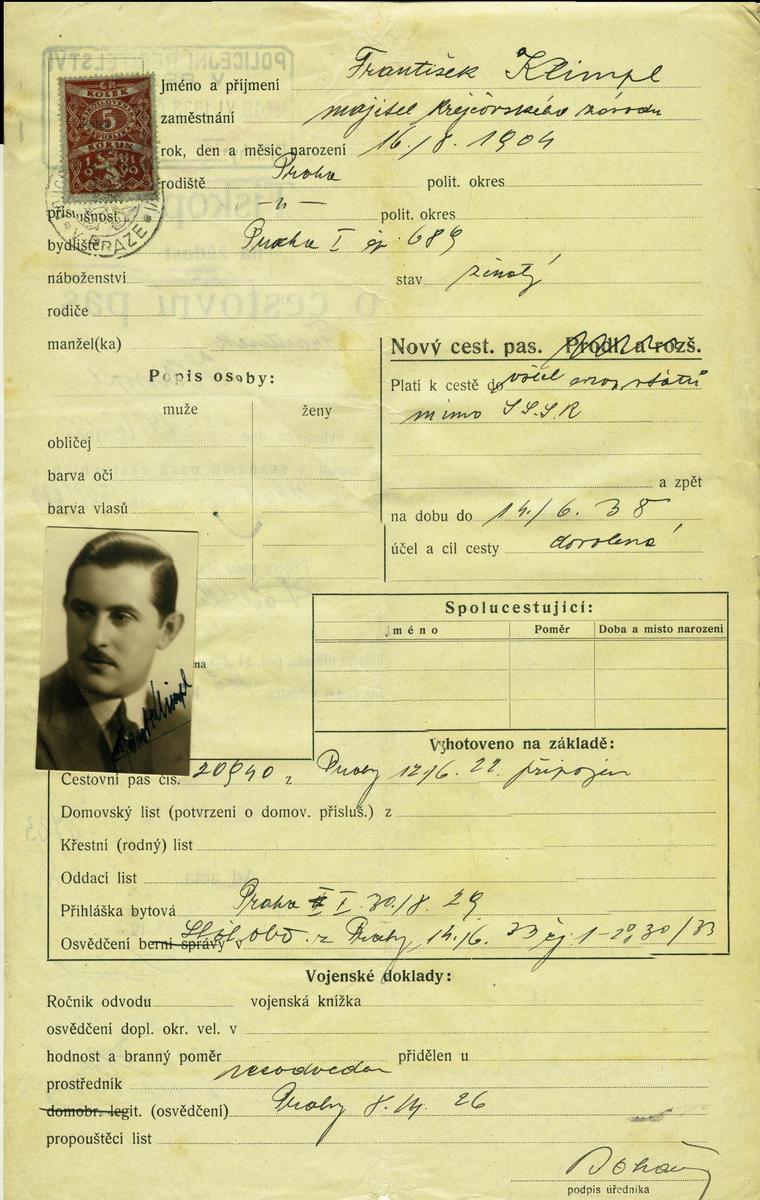 ČR.
KOLEK
5
KORUN
V PRAZE
Jméno a příjmení František Klimpl
zaměstnání majitel krejčovského závodu
rok, den a měsíc narození 16./8. 1904
rodiště Praha polit. okres
příslušnost -"- polit. okres
bydliště Praha I čp. 689
náboženství stav ženatý
rodiče
manžel(ka)
Popis osoby:
muže ženy
obličej
barva očí
barva vlasů
Nový cest. pas. Prodl. a rozš.
Platí k cestě do všech evrop. států
mimo S.S.S.R
a zpět
na dobu do 14./6. 38
účel a cíl cesty dovolená
Spolucestující:
Jméno Poměr Doba a místo narození
na
Vyhotoveno na základě:
Cestovní pas čís. 20940 z Prahy 12/6. 22. připojen
Domovský list (potvrzení o domov. přísluš.) z
Křestní (rodný) list
Oddací list
Přihláška bytová Praha I 30./8. 29
Osvědčení berní správy v z Prahy 14./6. 33 čj. 1-2830/33
Vojenské doklady:
Ročník odvodu vojenská knížka
osvědčení dopl. okr. vel. v
hodnost a branný poměr neodveden přidělen u
prostředník
domobr. legit. (osvědčení) Prahy 8./4. 26
propouštěcí list
podpis úředníka